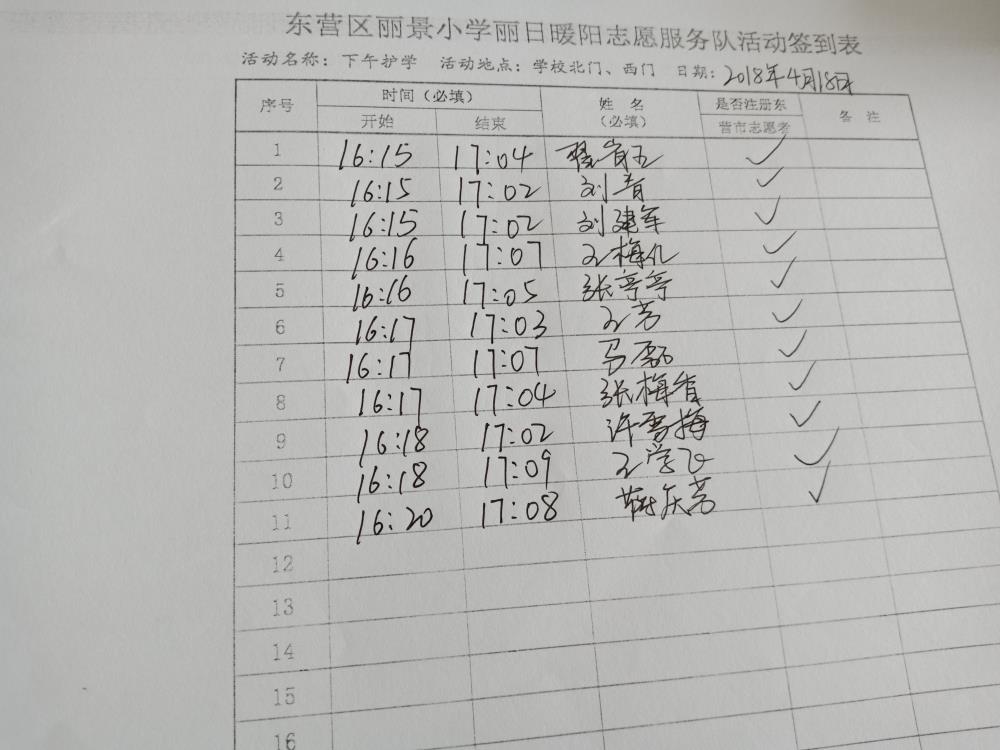 东营区丽景小学丽日暖阳志愿服务队活动签到表
活动名称：下午护学 活动地点：学校北门、西门 日期：2018年4月18日
序号 时间（必填） 姓名（必填） 是否注册东营市志愿者 备注
开始 结束
1 16:15 17:04 ✓
2 16:15 17:02 刘青 ✓
3 16:15 17:02 刘建军 ✓
4 16:16 17:07 王梅 ✓
5 16:16 17:05 张亭亭 ✓
6 16:17 17:03 王芳 ✓
7 16:17 17:07 马磊 ✓
8 16:17 17:04 张梅 ✓
9 16:18 17:02 许雪梅 ✓
10 16:18 17:09 王学飞 ✓
11 16:20 17:08 庆芳 ✓
12
13
14
15
16